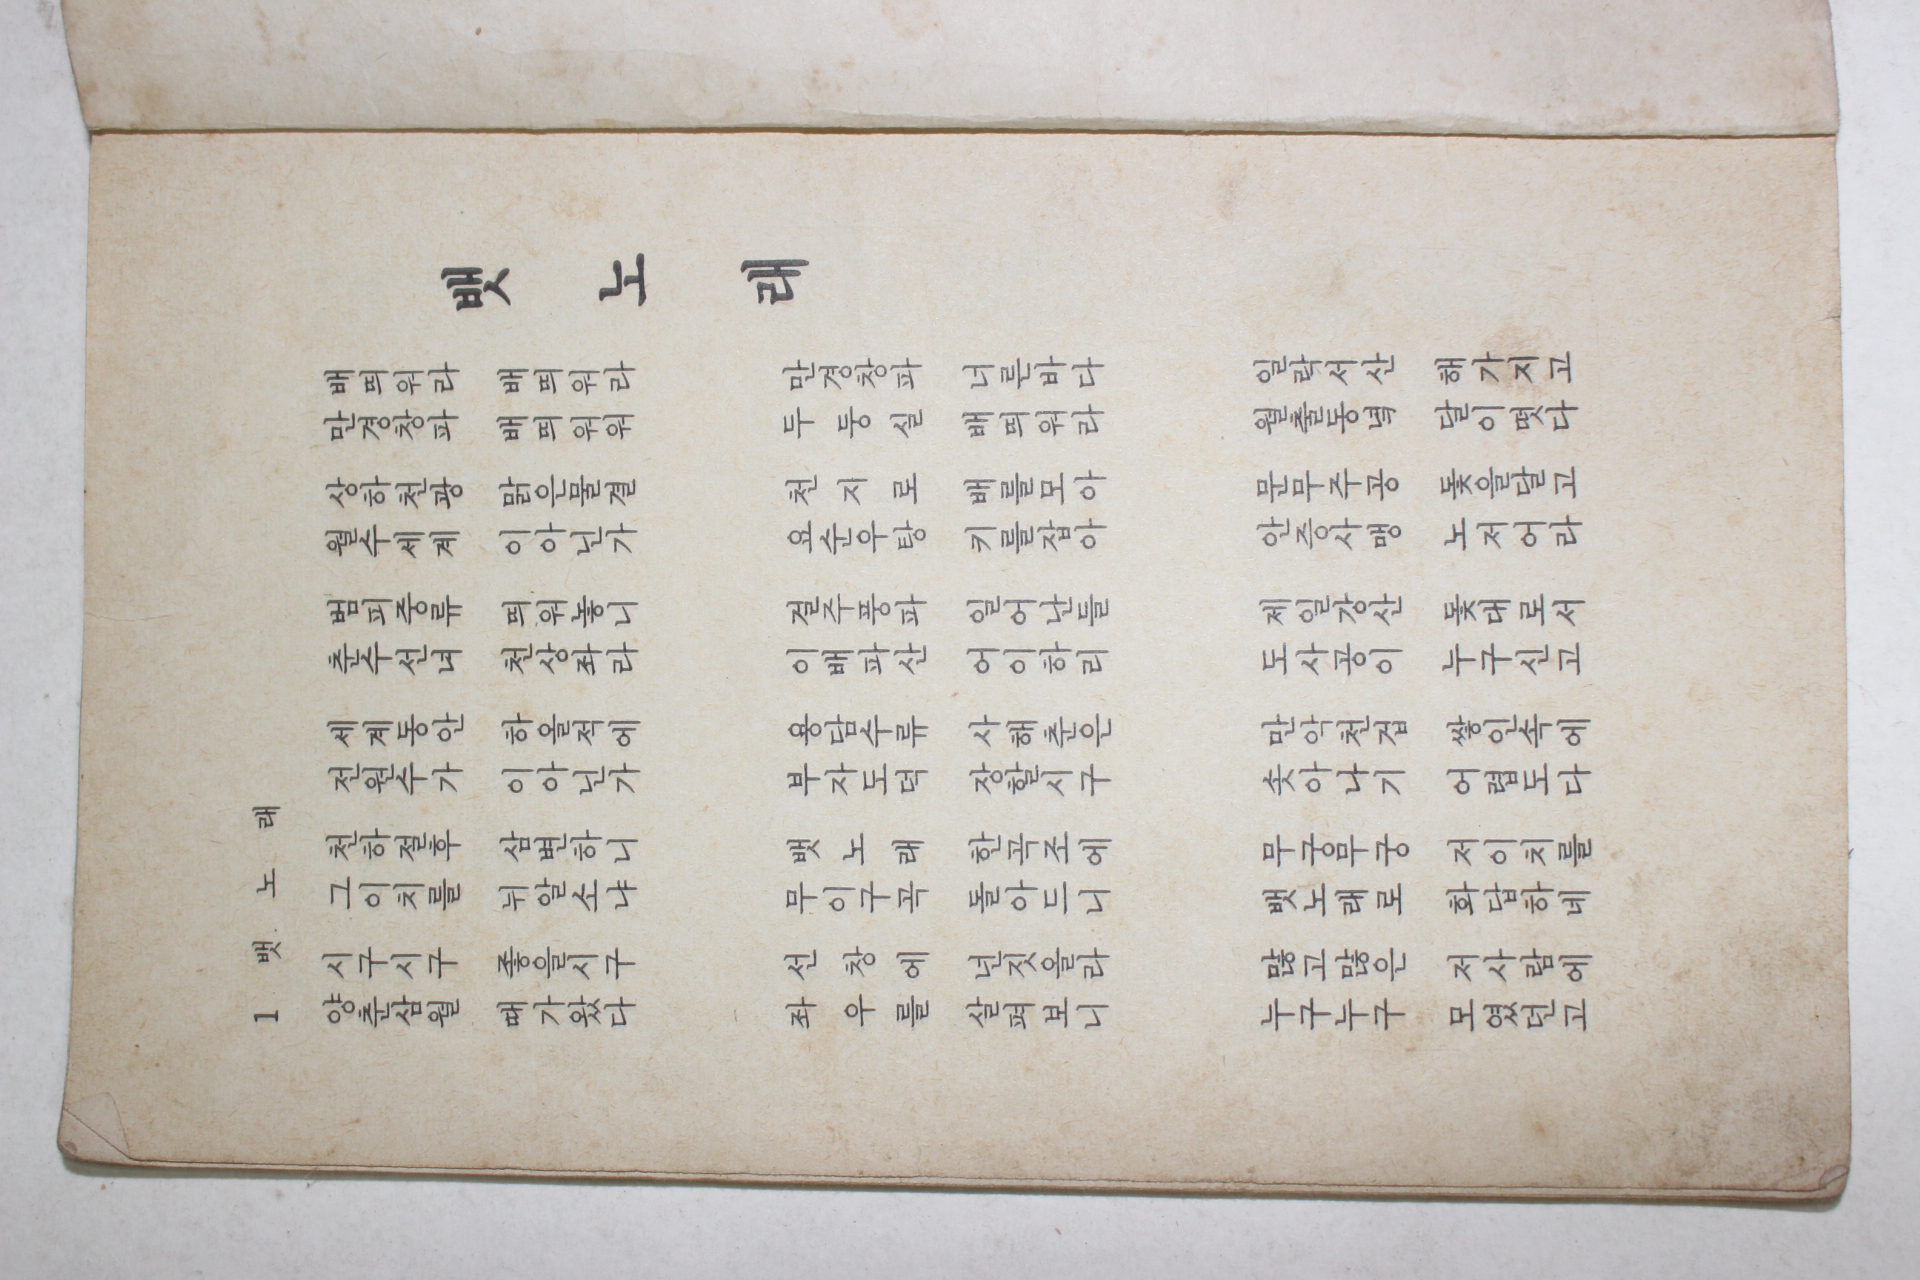 뱃노래
배띄워라 배띄워라
만경창파 배띄워워
상하천광 맑은물결
월수세계 이아닌가
범피중류 띄워놓니
춘수선녀 천상좌라
세계동안 하올적에
전원수가 이아닌가
천하절후 삼변하니
그이치를 뉘알소냐
시구시구 좋을시구
양춘삼월 때가왔다
만경창파 너른바다
두둥실 배띄워라
천지로 배를모아
요순우탕 키를잡아
걸주풍파 일어난들
이배파산 어이하리
용담수류 사해춘은
부자도덕 장할시구
뱃노래 한곡조에
무이구곡 돌아드니
선창에 넌짓올라
좌우를 살펴보니
일락서산 해가지고
월출동녘 달이떳다
문무주공 돛을달고
안증사맹 노저어라
제일강산 돛대로서
도사공이 누구신고
만악천겁 쌓인속에
솟아나기 어렵도다
무궁무궁 저이치를
뱃노래로 화답하네
많고많은 저사람에
누구누구 모였던고
뱃노래 1